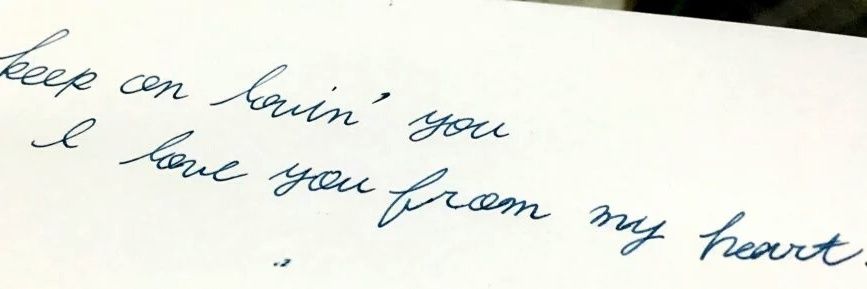 keep on lovin' you
I love you from my heart.